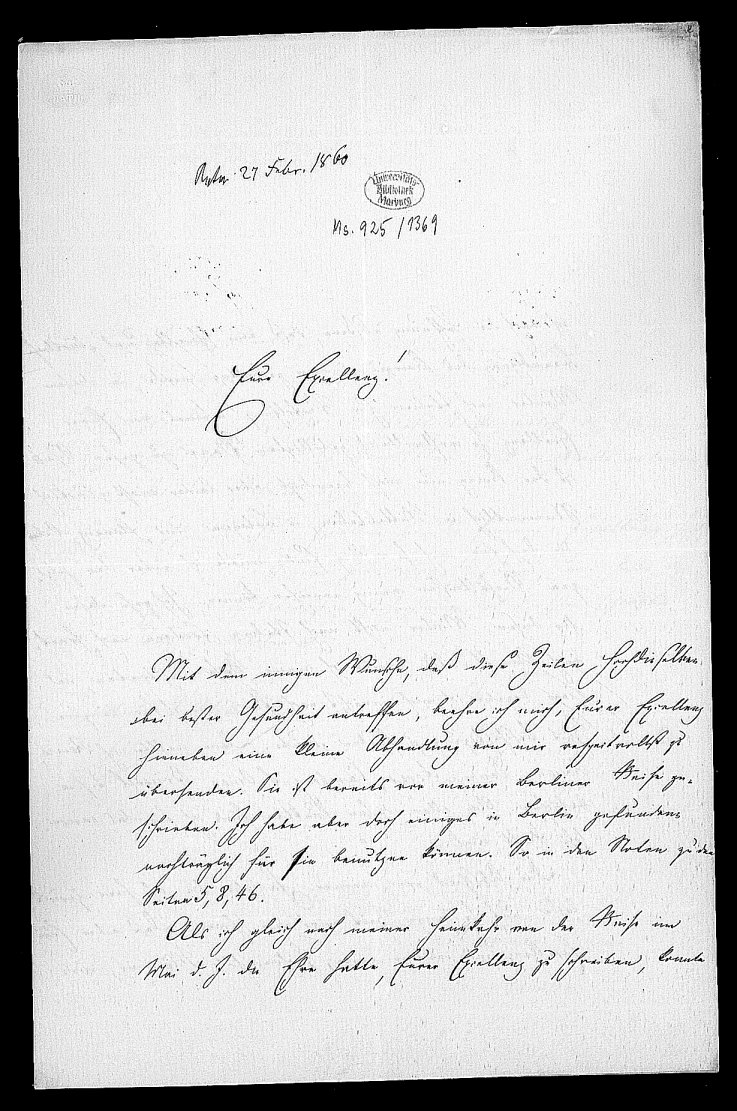 27 Febr. 1860
Universitäts
Bibliothek
Marburg
Ms. 925/1369
Eure Excellenz!
Mit dem innigen Wunsche, daß diese Zeilen Hochdieselben
bei bester Gesundheit antreffen, beehre ich mich, Eurer Excellenz
hieneben eine kleine Abhandlung von mir respectvollst zu
übersenden. Sie ist bereits vor meiner Berliner Reise ge-
schrieben. Ich habe aber doch einiges in Berlin gefundene
nachträglich für sie benutzen können. So in den Noten zu den
Seiten 5, 8, 46.
Als ich gleich nach meiner Heimkehr von der Reise im
Mai d. J. die Ehre hatte, Eurer Excellenz zu schreiben, konnte